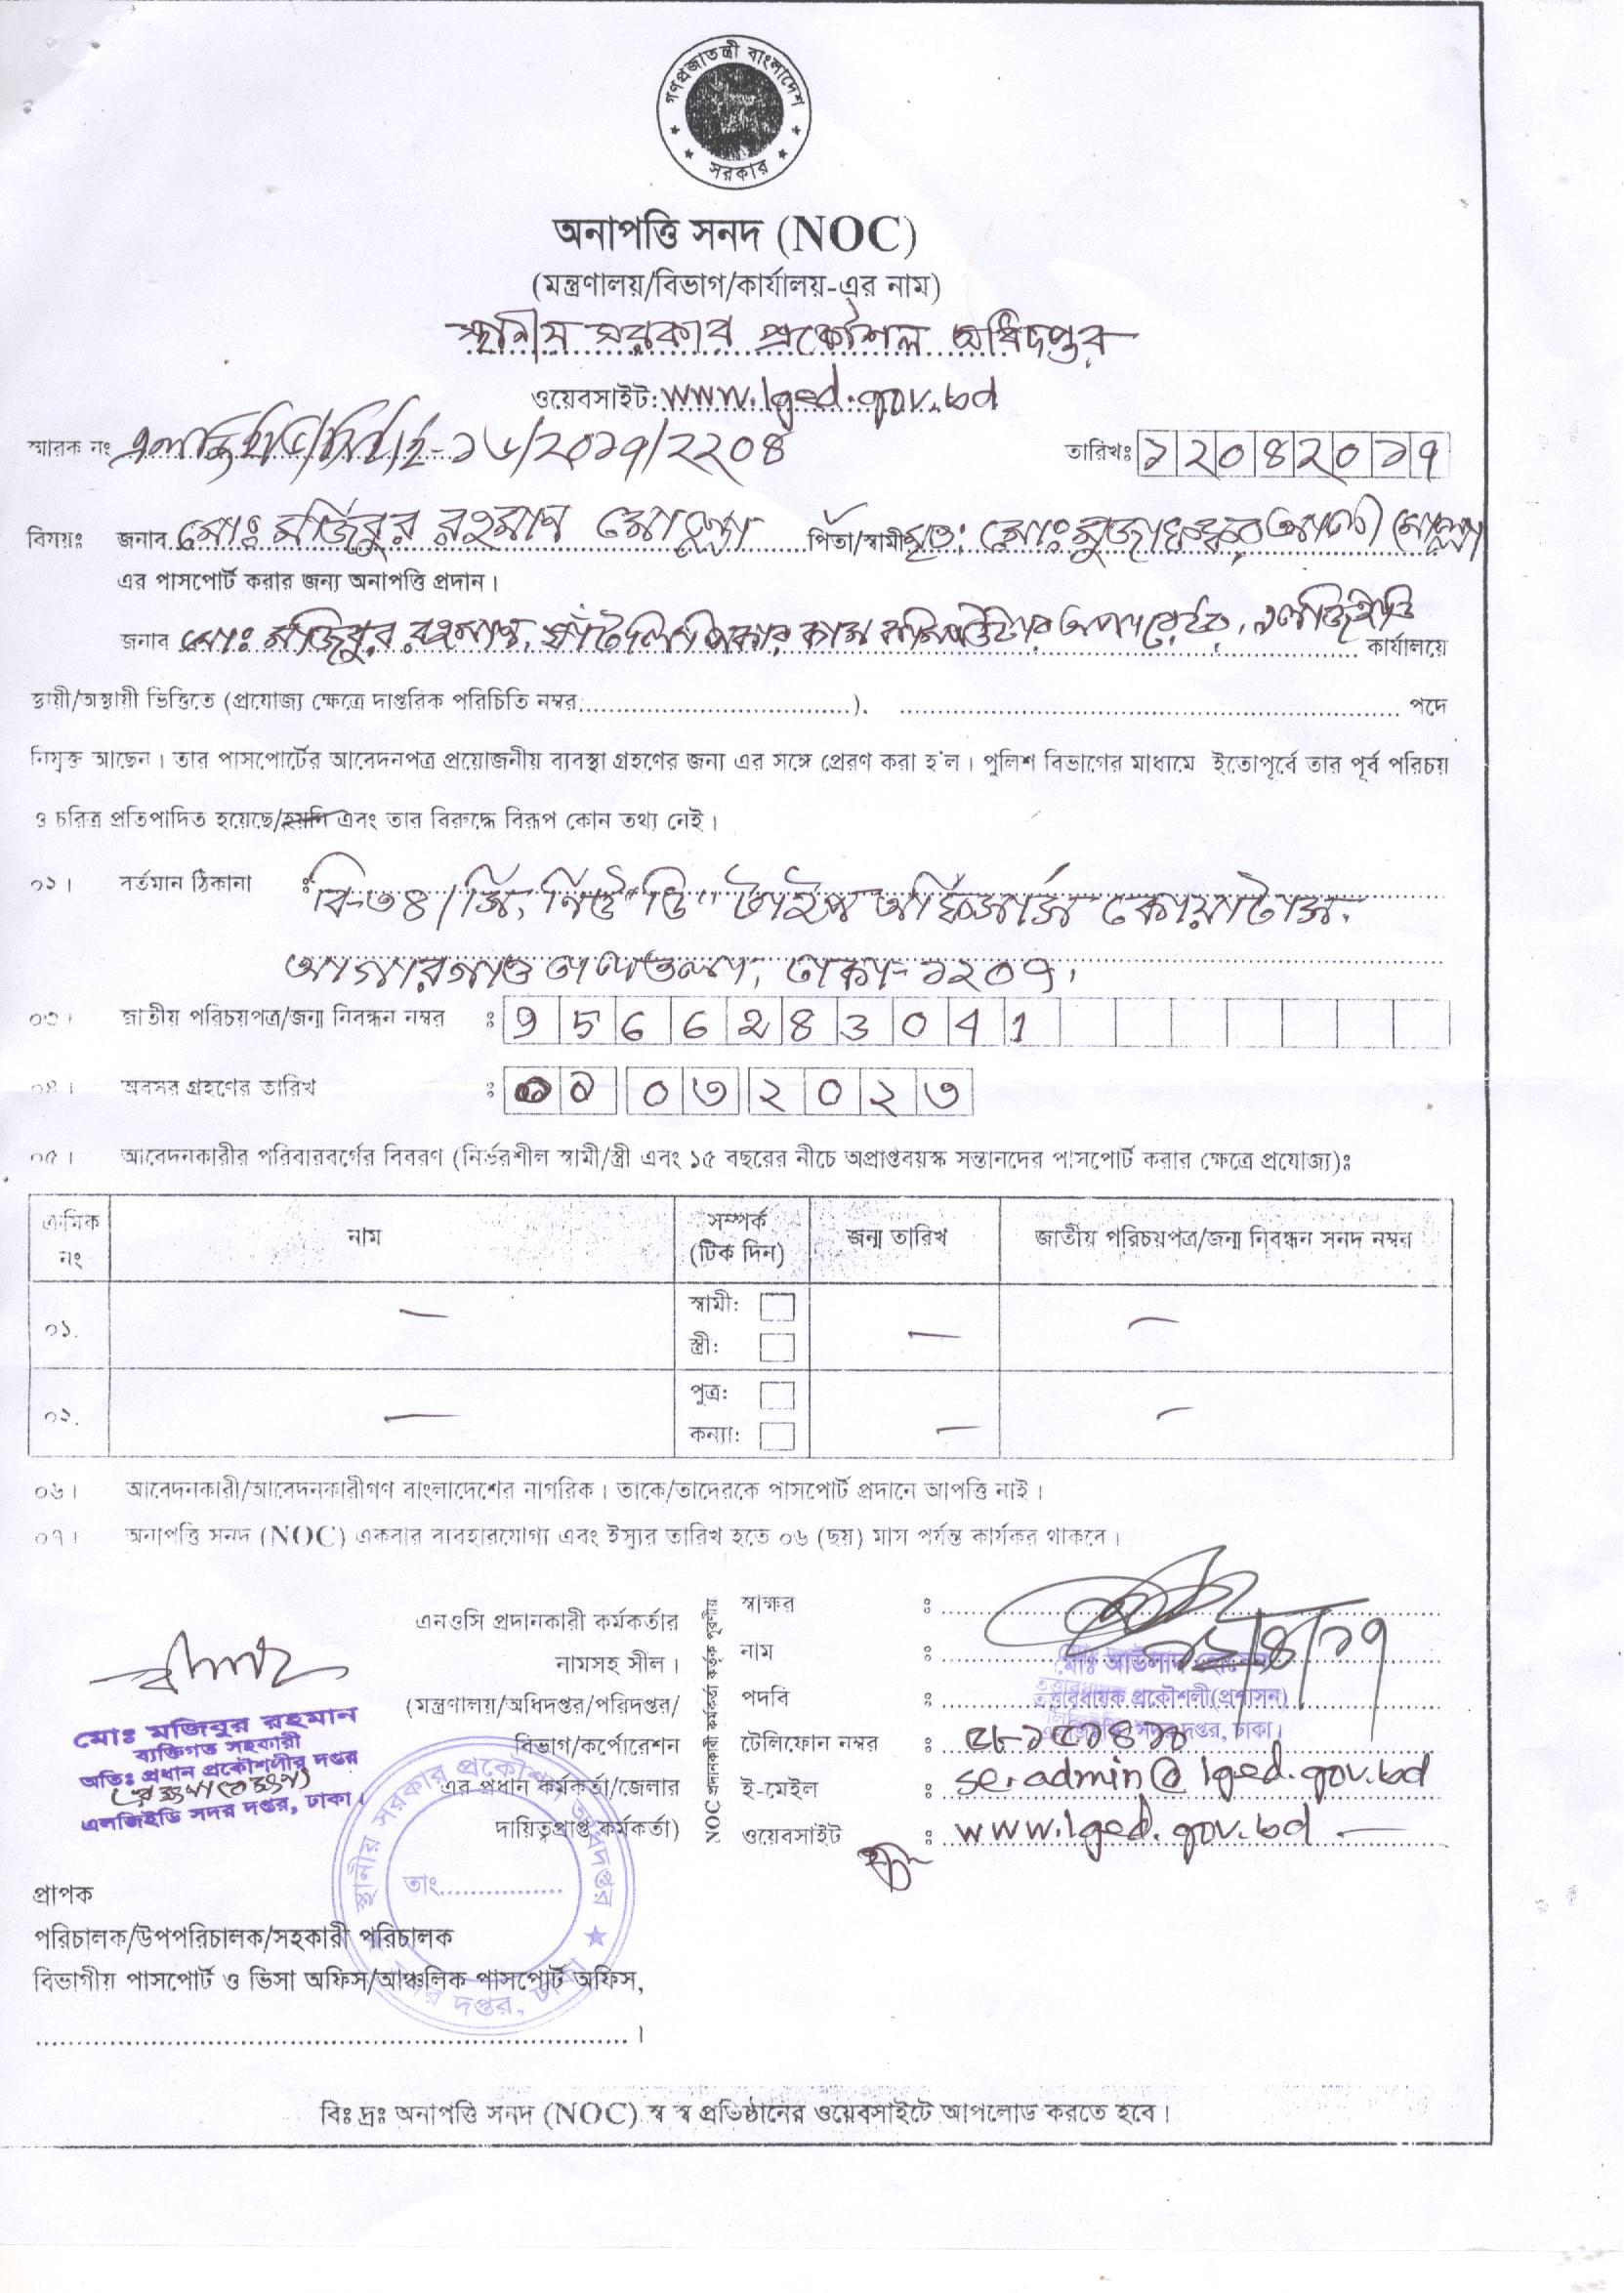 গণপ্রজাতন্ত্রী বাংলাদেশ
সরকার
অনাপত্তি সনদ (NOC)
(মন্ত্রণালয়/বিভাগ/কার্যালয়-এর নাম)
স্থানীয় সরকার প্রকৌশল অধিদপ্তর
ওয়েবসাইট: www.lged.gov.bd
স্মারক নং এলজিইডি/সিই/ই-১৬/২০১৭/২২০৪ তারিখঃ ১২০৪২০১৭
বিষয়ঃ জনাব মোঃ মজিবুর রহমান মোল্লা পিতা/স্বামী মৃত: মোঃ মুজাফ্ফর আলী মোল্লা
এর পাসপোর্ট করার জন্য অনাপত্তি প্রদান।
জনাব মোঃ মজিবুর রহমান, সাঁটলিপিকার কাম কম্পিউটার অপারেটর, এলজিইডি কার্যালয়ে
স্থায়ী/অস্থায়ী ভিত্তিতে (প্রযোজ্য ক্ষেত্রে দাপ্তরিক পরিচিতি নম্বর:..................), .................. পদে
নিযুক্ত আছেন। তার পাসপোর্টের আবেদনপত্র প্রয়োজনীয় ব্যবস্থা গ্রহণের জন্য এর সঙ্গে প্রেরণ করা হ'ল। পুলিশ বিভাগের মাধ্যমে ইতোপূর্বে তার পূর্ব পরিচয়
ও চরিত্র প্রতিপাদিত হয়েছে/হয়নি এবং তার বিরুদ্ধে বিরূপ কোন তথ্য নেই।
০২। বর্তমান ঠিকানা ঃ বি-৩৪/জি, নিউ "ডি" টাইপ অফিসার্স কোয়ার্টাস,
আগারগাঁও তালতলা, ঢাকা-১২০৭,
০৩। জাতীয় পরিচয়পত্র/জন্ম নিবন্ধন নম্বর ঃ 9566283041
০৪। অবসর গ্রহণের তারিখ ঃ ০৩২০২৩
০৫। আবেদনকারীর পরিবারবর্গের বিবরণ (নির্ভরশীল স্বামী/স্ত্রী এবং ১৫ বছরের নীচে অপ্রাপ্তবয়স্ক সন্তানদের পাসপোর্ট করার ক্ষেত্রে প্রযোজ্য)ঃ
ক্রমিক নং নাম সম্পর্ক (টিক দিন) জন্ম তারিখ জাতীয় পরিচয়পত্র/জন্ম নিবন্ধন সনদ নম্বর
০১. — স্বামী: — —
স্ত্রী:
০২. — পুত্র: — —
কন্যা:
০৬। আবেদনকারী/আবেদনকারীগণ বাংলাদেশের নাগরিক। তাকে/তাদেরকে পাসপোর্ট প্রদানে আপত্তি নাই।
০৭। অনাপত্তি সনদ (NOC) একবার ব্যবহারযোগ্য এবং ইস্যুর তারিখ হতে ০৬ (ছয়) মাস পর্যন্ত কার্যকর থাকবে।
এনওসি প্রদানকারী কর্মকর্তার
নামসহ সীল।
(মন্ত্রণালয়/অধিদপ্তর/পরিদপ্তর/
বিভাগ/কর্পোরেশন
এর প্রধান কর্মকর্তা/জেলার
দায়িত্বপ্রাপ্ত কর্মকর্তা)
NOC প্রদানকারী কর্মকর্তা কর্তৃক পূরণীয়
স্বাক্ষর ঃ
নাম ঃ মোঃ আউলাদ হোসেন
পদবি ঃ তত্ত্বাবধায়ক প্রকৌশলী(প্রশাসন)
এলজিইডি সদর দপ্তর, ঢাকা।
টেলিফোন নম্বর ঃ
ই-মেইল ঃ se.admin@lged.gov.bd
ওয়েবসাইট ঃ www.lged.gov.bd
মোঃ মজিবুর রহমান
ব্যক্তিগত সহকারী
অতিঃ প্রধান প্রকৌশলীর দপ্তর
এলজিইডি সদর দপ্তর, ঢাকা।
স্থানীয় সরকার প্রকৌশল অধিদপ্তর
সদর দপ্তর, ঢাকা
তাং..................
প্রাপক
পরিচালক/উপপরিচালক/সহকারী পরিচালক
বিভাগীয় পাসপোর্ট ও ভিসা অফিস/আঞ্চলিক পাসপোর্ট অফিস,
..................।
বিঃ দ্রঃ অনাপত্তি সনদ (NOC) স্ব স্ব প্রতিষ্ঠানের ওয়েবসাইটে আপলোড করতে হবে।